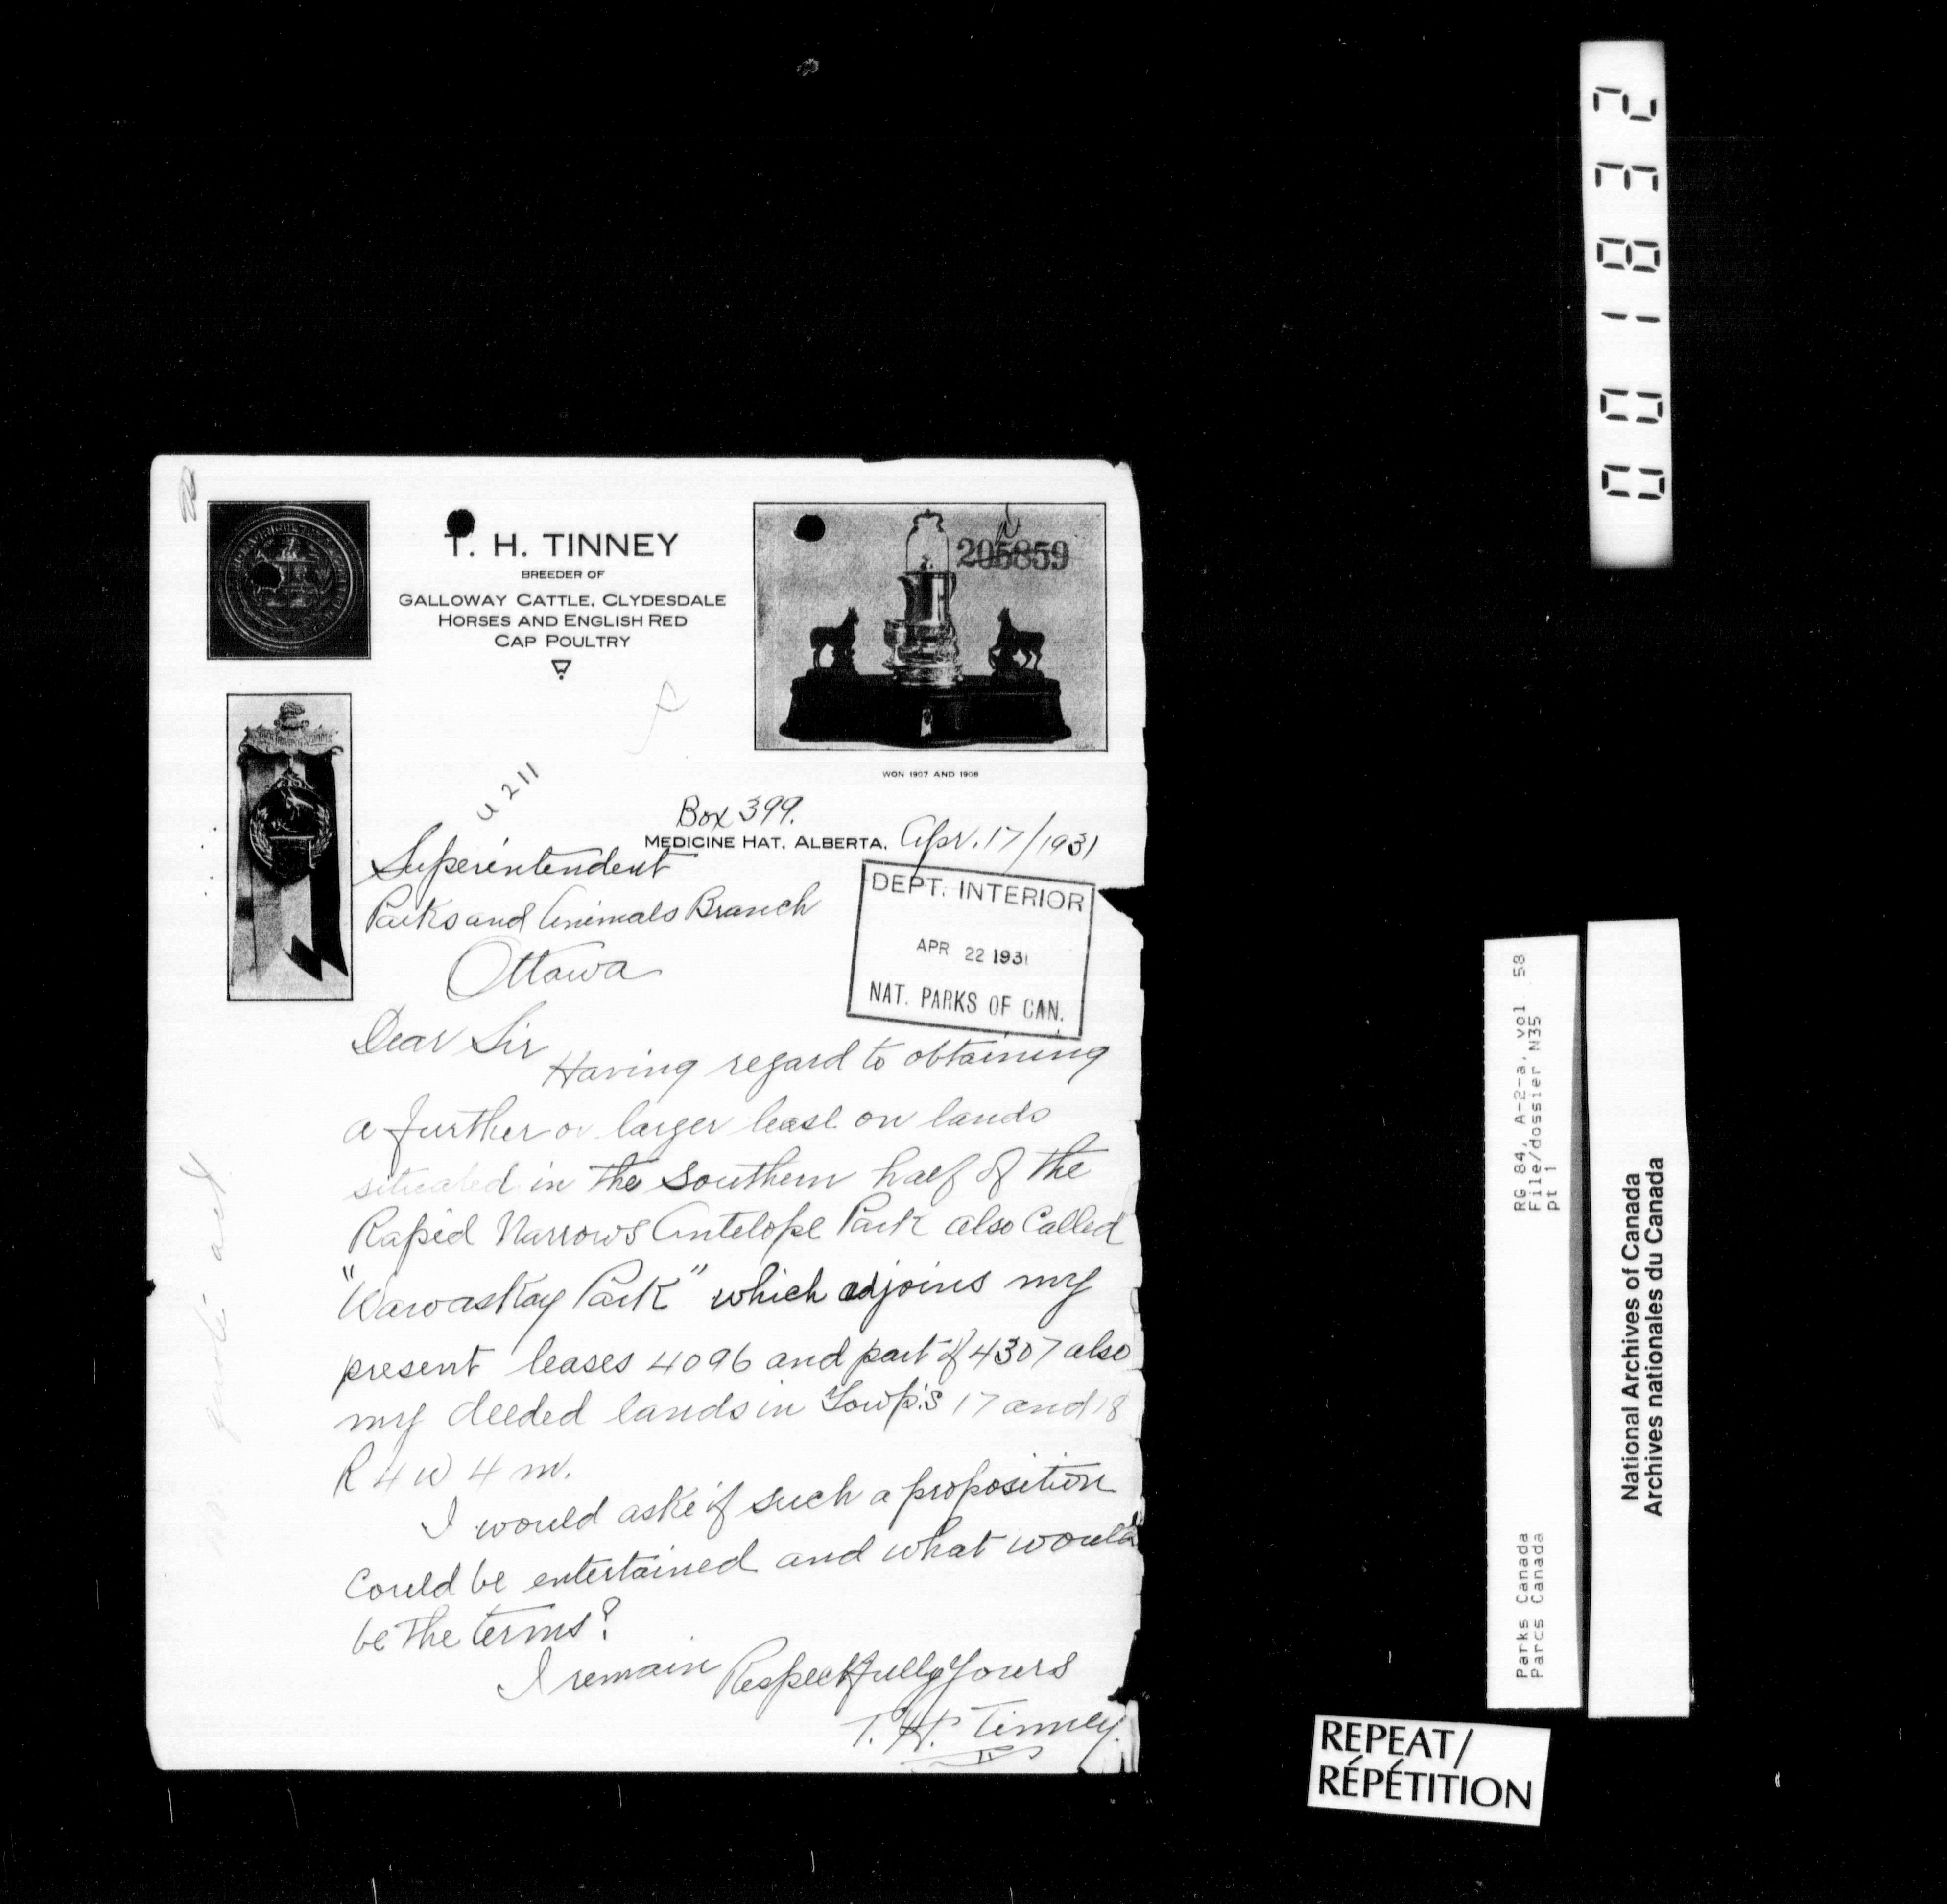 T. H. TINNEY
BREEDER OF
GALLOWAY CATTLE, CLYDESDALE
HORSES AND ENGLISH RED
CAP POULTRY
205859
WON 1907 AND 1908
U 211
Box 399.
MEDICINE HAT, ALBERTA, Apr. 17/1931
Superintendent
Parks and Animals Branch
Ottawa
DEPT. INTERIOR
APR 22 1931
NAT. PARKS OF CAN.
Dear Sir
Having regard to obtaining
a further or larger lease on lands
situated in the southern half of the
Rapid Narrows Antelope Park also Called
"Wawaskay Park" which adjoins my
present leases 4096 and part of 4307 also
my deeded lands in Towp's 17 and 18
R 4 W 4 m.
I would aske if such a proposition
Could be entertained and what would
be the terms?
I remain Respectfully Yours
T. H. Tinney.
001832
RG 84, A-2-a, vol 58
File/dossier N35
pt 1
Parks Canada
Parcs Canada
National Archives of Canada
Archives nationales du Canada
REPEAT/
RÉPÉTITION